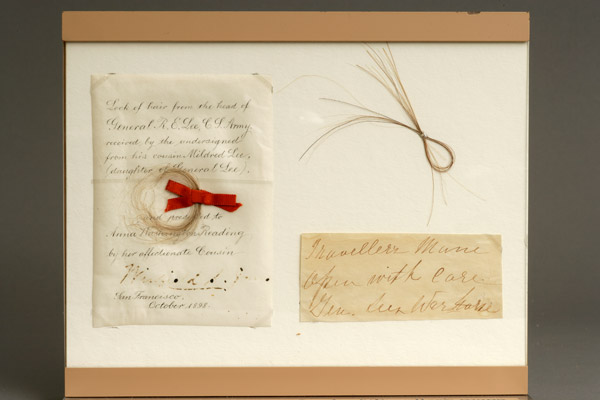 Lock of hair from the head of
General R. E. Lee, C. S. Army,
received by the undersigned
from his cousin Mildred Lee,
(daughter of General Lee),
and presented to
Anna Washington Reading
by her affectionate Cousin
San Francisco,
October 1898.
Travellers Mane
Open with Care
Gen. Lees War Horse